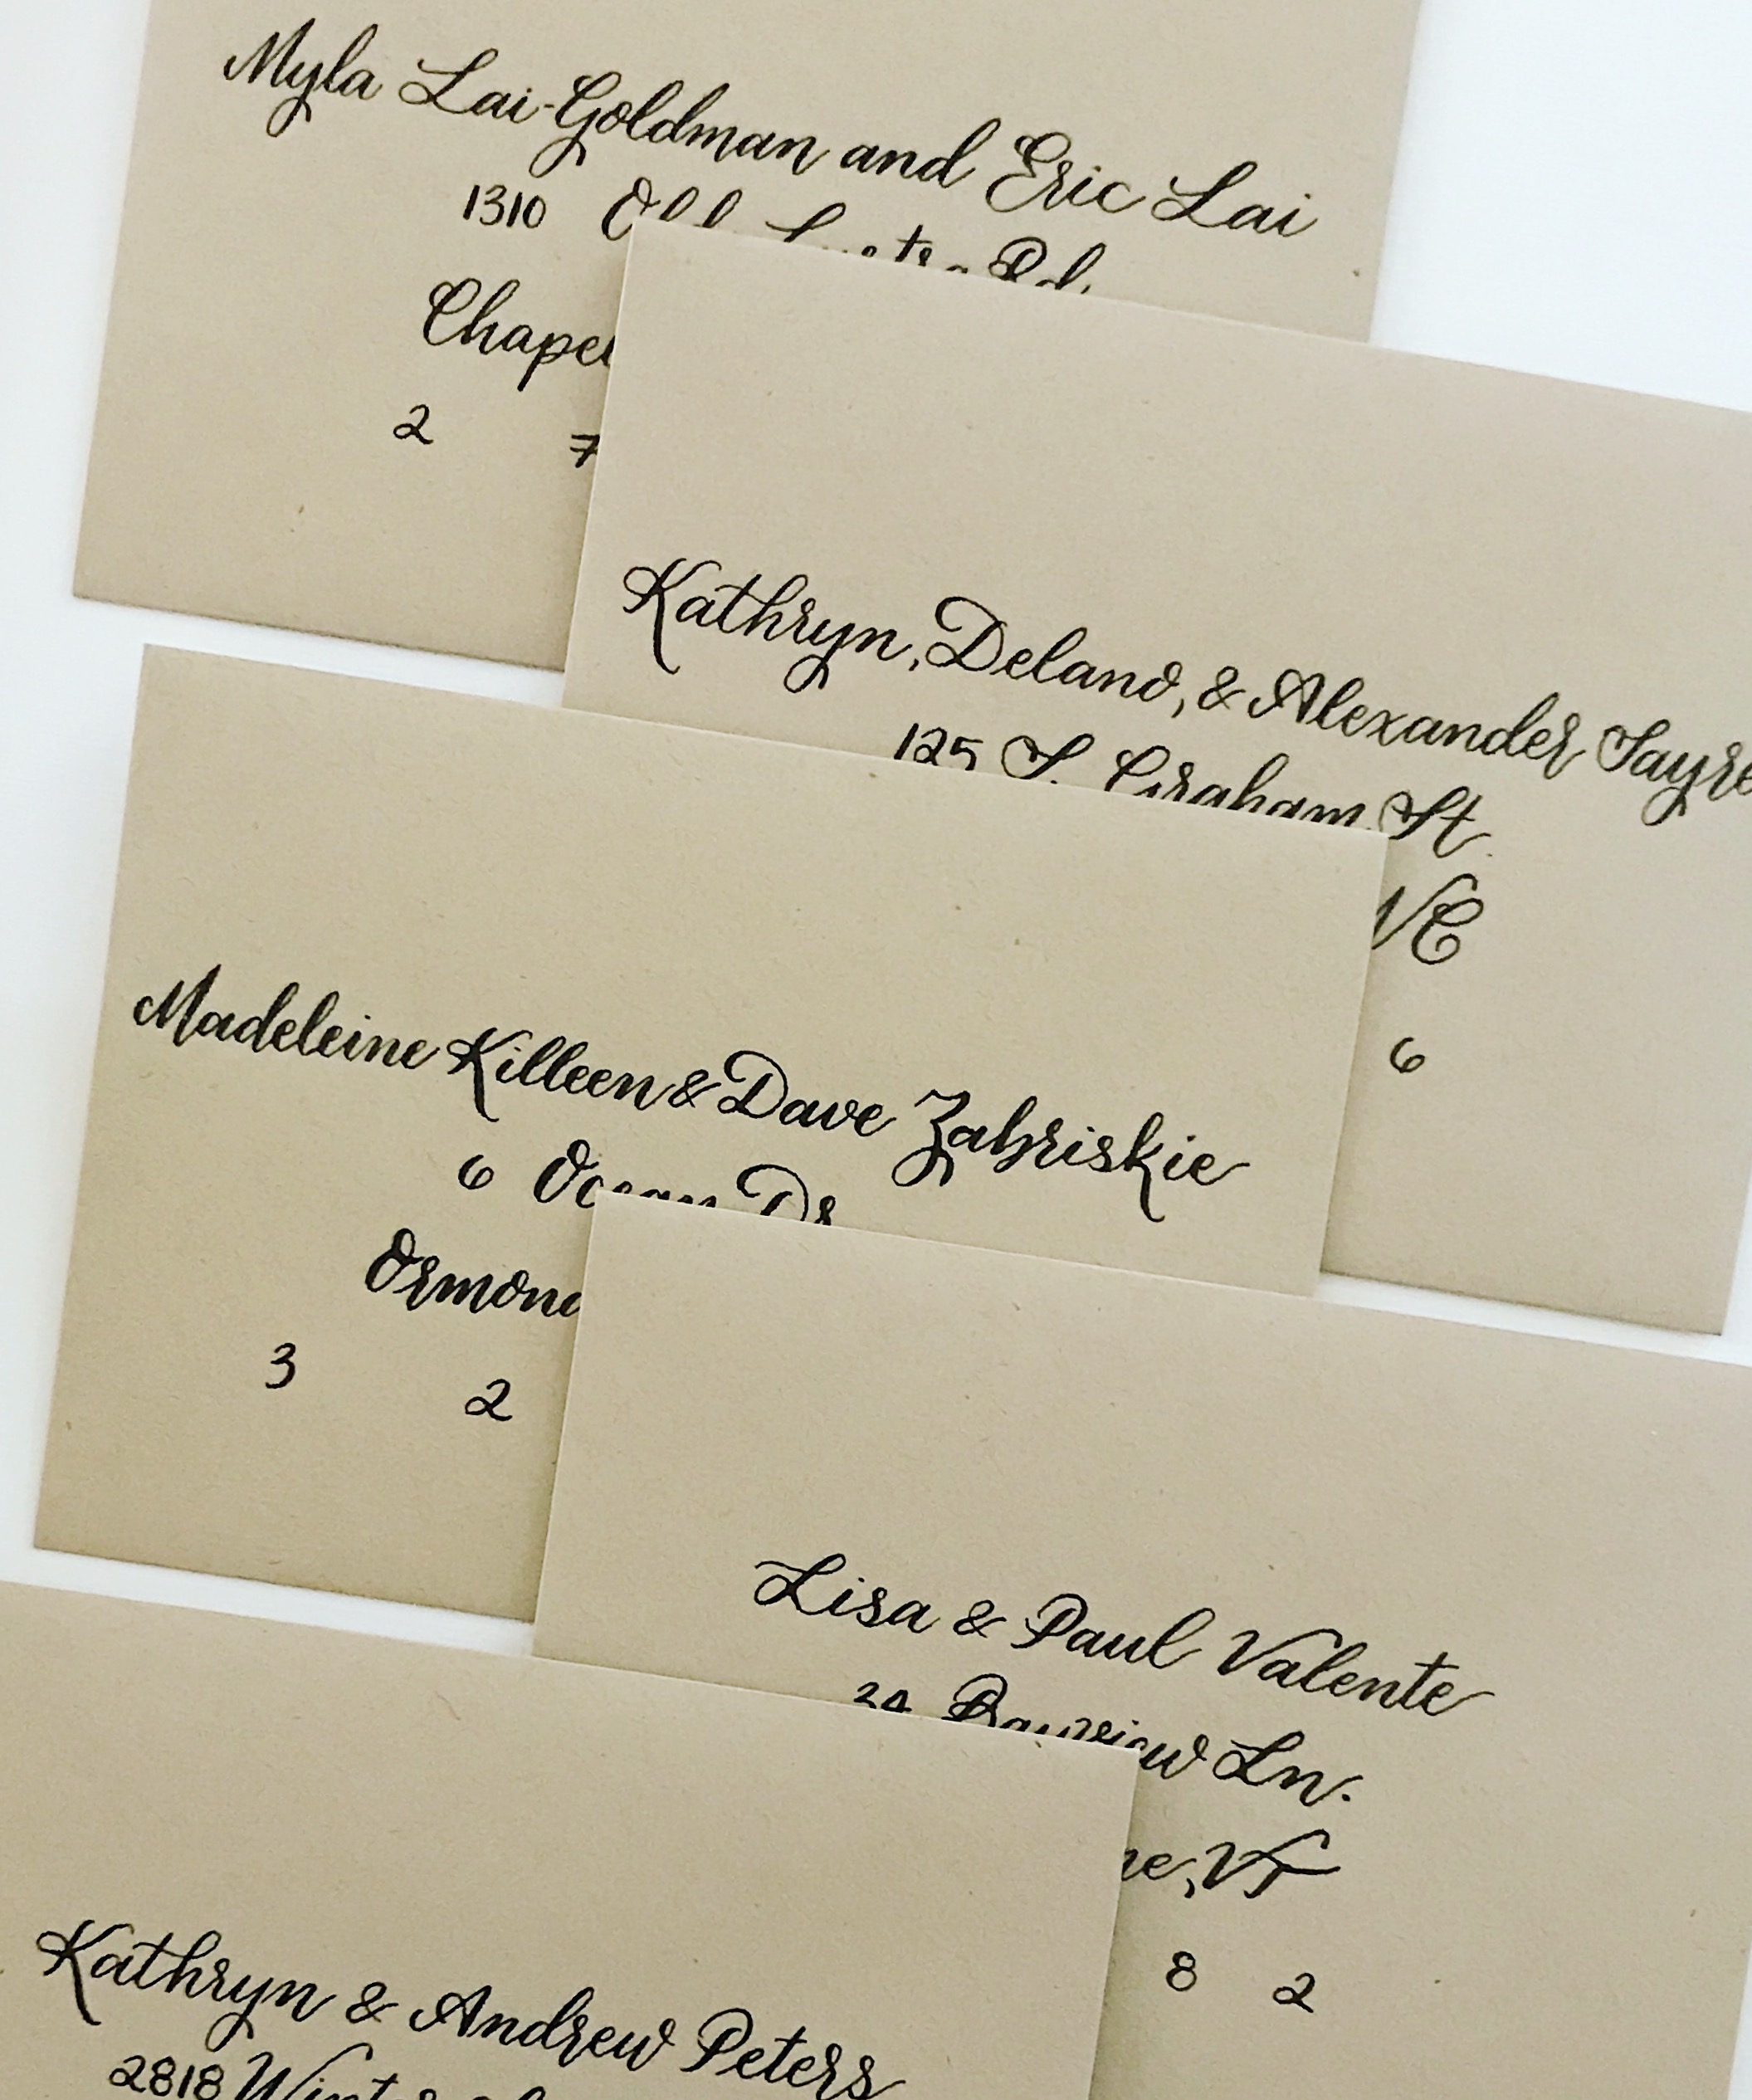 Myla Lai-Goldman and Eric Lai
1310 Rd.
2 7
Kathryn, Deland, & Alexander Sayre
125 S. Graham St.
NC
6
Madeleine Killeen & Dave Zabriskie
6 Ocean Dr
3 2
Lisa & Paul Valente
Ln.
VT
8 2
Kathryn & Andrew Peters
2818